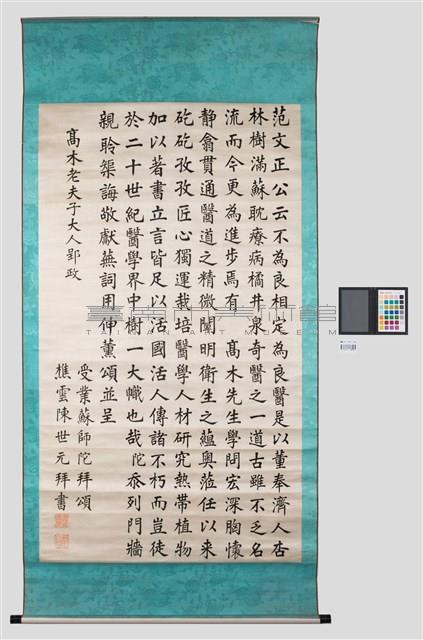 范文正公云不為良相定為良醫是以董奉濟人杏
林樹滿蘇耽療病橘井泉奇醫之一道古雖不乏名
流而今更為進步焉有　髙木先生學問宏深胸懷
静翕貫通醫道之精微闡明衛生之蘊奧蒞任以来
矻矻孜孜匠心獨運栽培醫學人材研究熱帶植物
加以著書立言皆足以活國活人傳諸不朽而豈徒
於二十世紀醫學界中樹一大幟也哉陀忝列門牆
親聆榘誨敬獻蕪詞用伸薰頌並呈
髙木老夫子大人郢政
受業蘇師陀拜頌
樵雲陳世元拜書
臺南美術館
TAINAN ART MUSEUM